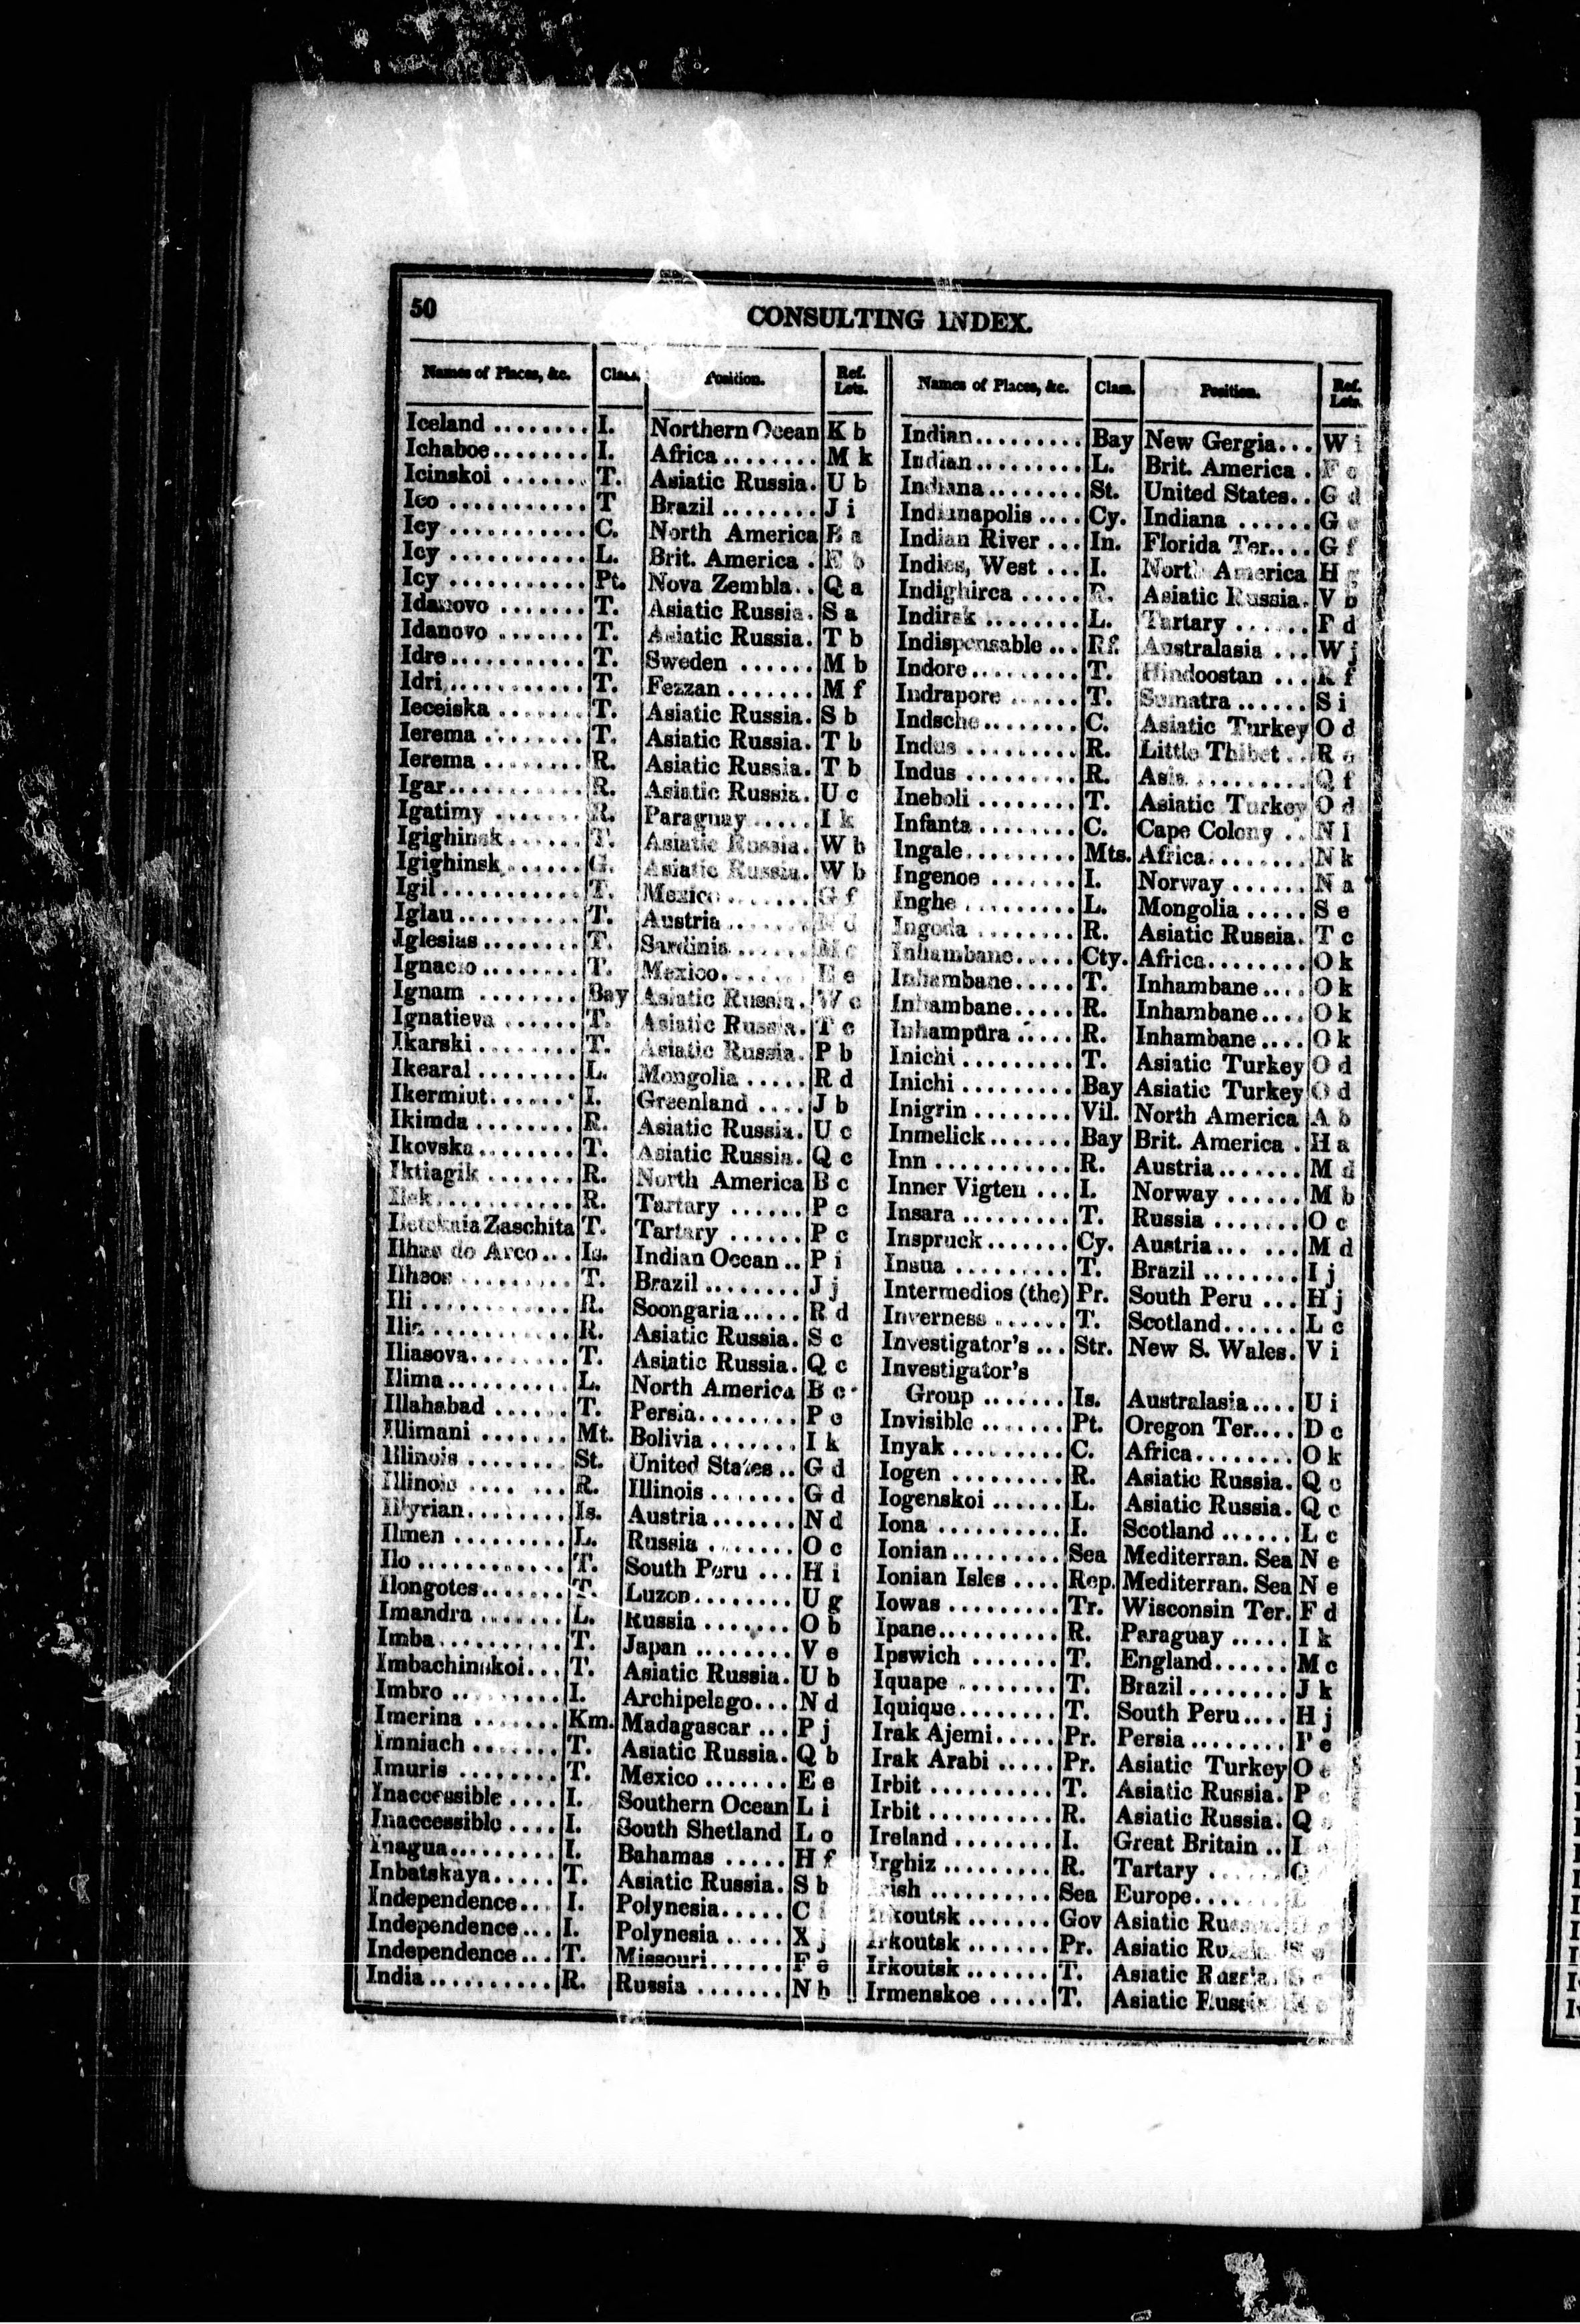 50
CONSULTING INDEX.
Names of Places, &c. Class. Position. Ref. Lets.
Iceland ........ I. Northern Ocean K b
Ichaboe........ I. Africa ........ M k
Icinskoi ....... T. Asiatic Russia. U b
Ico ........... T Brazil ........ J i
Icy ........... C. North America B a
Icy ........... L. Brit. America . E b
Icy ........... Pt. Nova Zembla.. Q a
Idanovo ....... T. Asiatic Russia. S a
Idanovo ....... T. Asiatic Russia. T b
Idre........... T. Sweden ...... M b
Idri........... T. Fezzan ....... M f
Ieceiska ....... T. Asiatic Russia. S b
Ierema ........ T. Asiatic Russia. T b
Ierema ........ R. Asiatic Russia. T b
Igar........... R. Asiatic Russia. U c
Igatimy ....... R. Paraguay ..... I k
Igighinsk...... T. Asiatic Russia. W b
Igighinsk...... G. Asiatic Russia. W b
Igil........... T. Mexico ....... G f
Iglau.......... T. Austria ....... N d
Iglesias........ T. Sardinia ...... M
Ignacio........ T. Mexico....... E e
Ignam ........ Bay Asiatic Russia. W c
Ignatieva ...... T. Asiatic Russia. T c
Ikarski ........ T. Asiatic Russia. P b
Ikearal ........ L. Mongolia ..... R d
Ikermiut....... I. Greenland .... J b
Ikimda ........ R. Asiatic Russia. U c
Ikovska........ T. Asiatic Russia. Q c
Iktiagik ....... R. North America B c
Ilek........... R. Tartary ...... P c
Iletskaia Zaschita T. Tartary ...... P c
Ilhas do Arco... Is. Indian Ocean .. P i
Ilheos ......... T. Brazil ........ J j
Ili ............ R. Soongaria..... R d
Ilia........... R. Asiatic Russia. S c
Iliasova........ T. Asiatic Russia. Q c
Ilima.......... L. North America B c
Illahabad ...... T. Persia........ P e
Illimani ....... Mt. Bolivia ....... I k
Illinois ........ St. United States .. G d
Illinois ........ R. Illinois ....... G d
Illyrian........ Is. Austria....... N d
Ilmen ......... L. Russia ....... O c
Ilo............ T. South Peru ... H i
Ilongotes....... T. Luzon........ U g
Imandra ....... L. Russia ....... O b
Imba.......... T. Japan ........ V e
Imbachinskoi... T. Asiatic Russia. U b
Imbro ......... I. Archipelago... N d
Imerina ....... Km. Madagascar ... P j
Imniach ....... T. Asiatic Russia. Q b
Imuris ........ T. Mexico ....... E e
Inaccessible .... I. Southern Ocean L i
Inaccessible .... I. South Shetland L o
Inagua......... I. Bahamas ..... H f
Inbatskaya..... T. Asiatic Russia. S b
Independence... I. Polynesia..... C i
Independence... I. Polynesia ..... X j
Independence... T. Missouri...... F e
India.......... R. Russia ....... N b
Names of Places, &c. Class. Position. Ref. Lets.
Indian......... Bay New Gergia... W i
Indian......... L. Brit. America . F c
Indiana........ St. United States.. G d
Indianapolis .... Cy. Indiana ...... G e
Indian River ... In. Florida Ter.... G f
Indies, West ... I. North America H g
Indighirca ..... R. Asiatic Russia. V b
Indirsk ........ L. Tartary ...... P d
Indispensable ... Rf. Australasia ... W j
Indore......... T. Hindoostan ... R f
Indrapore ...... T. Sumatra ...... S i
Indsche........ C. Asiatic Turkey O d
Indus ......... R. Little Thibet .. R
Indus ......... R. Asia.......... Q f
Ineboli ........ T. Asiatic Turkey O d
Infanta........ C. Cape Colony .. N l
Ingale......... Mts. Africa........ N k
Ingenoe ....... I. Norway ...... N a
Inghe ......... L. Mongolia ..... S e
Ingoda ........ R. Asiatic Russia. T c
Inhambane..... Cty. Africa........ O k
Inhambane..... T. Inhambane.... O k
Inhambane..... R. Inhambane.... O k
Inhampūra ..... R. Inhambane.... O k
Inichi ......... T. Asiatic Turkey O d
Inichi ......... Bay Asiatic Turkey O d
Inigrin ........ Vil. North America A b
Inmelick....... Bay Brit. America . H a
Inn ........... R. Austria....... M d
Inner Vigten ... I. Norway ...... M b
Insara ......... T. Russia ....... O c
Inspruck....... Cy. Austria... ... M d
Insua ......... T. Brazil ........ I j
Intermedios (the) Pr. South Peru ... H j
Inverness ...... T. Scotland...... L c
Investigator's ... Str. New S. Wales. V i
Investigator's
Group ....... Is. Australasia.... U i
Invisible ....... Pt. Oregon Ter.... D c
Inyak ......... C. Africa........ O k
Iogen ......... R. Asiatic Russia. Q c
Iogenskoi ...... L. Asiatic Russia. Q c
Iona .......... I. Scotland ...... L c
Ionian......... Sea Mediterran. Sea N e
Ionian Isles .... Rep. Mediterran. Sea N e
Iowas ......... Tr. Wisconsin Ter. F d
Ipane.......... R. Paraguay ..... I k
Ipswich ....... T. England...... M c
Iquape ........ T. Brazil........ J k
Iquique........ T. South Peru.... H j
Irak Ajemi..... Pr. Persia ........ P e
Irak Arabi ..... Pr. Asiatic Turkey O e
Irbit .......... T. Asiatic Russia. P c
Irbit .......... R. Asiatic Russia. Q
Ireland ........ I. Great Britain .. L
Irghiz ......... R. Tartary ......
Irish .......... Sea Europe....... L
Irkoutsk ....... Gov Asiatic Russia.
Irkoutsk ....... Pr. Asiatic Russia. S
Irkoutsk ....... T. Asiatic Russia. S
Irmenskoe ..... T. Asiatic Russia.